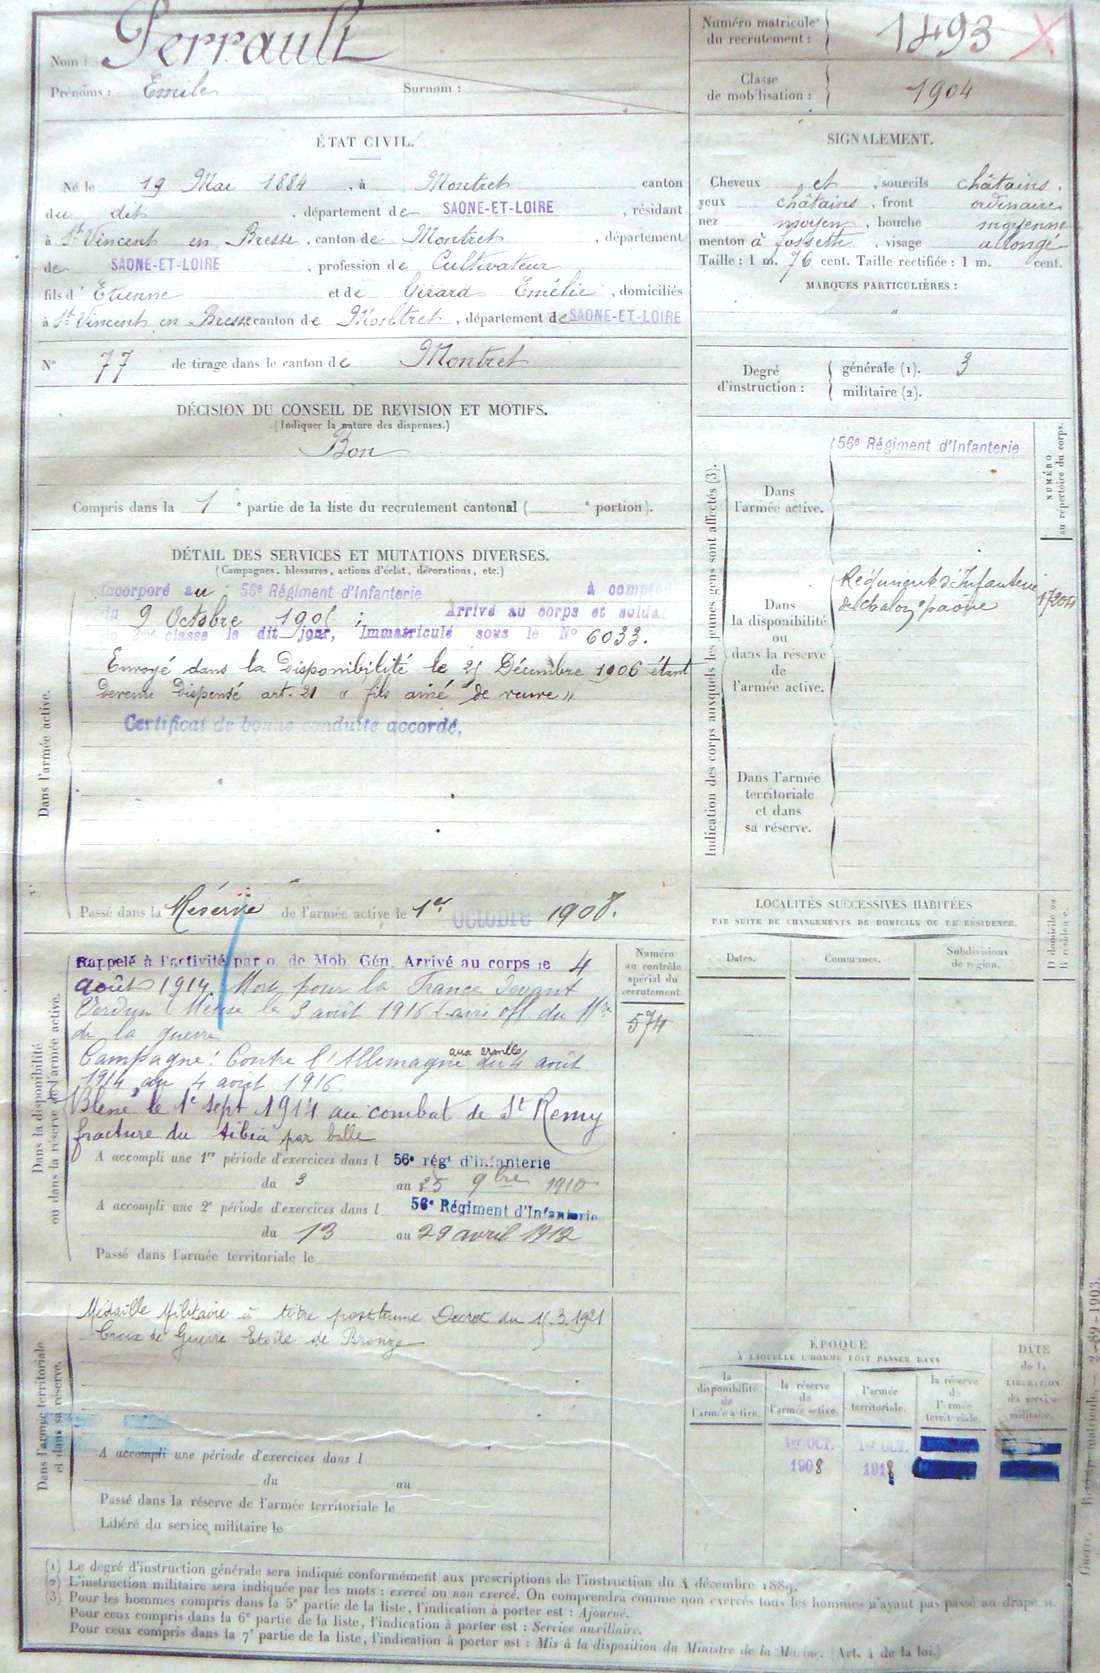 Nom : Perrault
Prénoms : Emile Surnom :
Numéro matricule du recrutement : 1493 X
Classe de mobilisation : 1904
ÉTAT CIVIL.
Né le 19 Mai 1884, à Montret canton
du dit, département de SAONE-ET-LOIRE, résidant
à St Vincent en Bresse, canton de Montret, département
de SAONE-ET-LOIRE, profession de Cultivateur
fils d' Etienne et de Girard Emélie, domiciliés
à St Vincent en Bresse canton de Montret, département de SAONE-ET-LOIRE
N° 77 de tirage dans le canton de Montret
SIGNALEMENT.
Cheveux et, sourcils châtains.
yeux châtains, front ordinaire
nez moyen, bouche moyenne
menton à fossette, visage allongé
Taille : 1 m. 76 cent. Taille rectifiée : 1 m. cent.
MARQUES PARTICULIÈRES :
"
Degré d'instruction : générale (1). 3
militaire (2).
DÉCISION DU CONSEIL DE REVISION ET MOTIFS.
(Indiquer la nature des dispenses.)
Bon
Compris dans la 1 e partie de la liste du recrutement cantonal ( e portion).
DÉTAIL DES SERVICES ET MUTATIONS DIVERSES.
(Campagnes, blessures, actions d'éclat, décorations, etc.)
Dans l'armée active.
Incorporé au 56e Régiment d'Infanterie à compter
du 9 Octobre 1905 ; Arrivé au corps et soldat
de 2me classe le dit jour, Immatriculé sous le No 6033.
Envoyé dans la Disponibilité le 21 Décembre 1906 étant
devenu Dispensé art. 21 "fils ainé de veuve"
Certificat de bonne conduite accordé.
Passé dans la Réserve de l'armée active le 1er Octobre 1908.
Indication des corps auxquels les jeunes gens sont affectés (3).
NUMÉRO
au répertoire du corps.
Dans
l'armée active.
56e Régiment d'Infanterie
Dans
la disponibilité
ou
dans la réserve
de
l'armée active.
Régiment d'Infanterie
de Chalon s/ Saône
Dans l'armée
territoriale
et dans
sa réserve.
Dans la disponibilité
ou dans la réserve de l'armée active.
Rappelé à l'activité par o. de Mob. Gén. Arrivé au corps le 4
août 1914. Mort pour la France devant
Verdun (Meuse) le 3 août 1916 (avis off. du Mre
de la guerre
Campagne : Contre l'Allemagne aux armées du 4 août
1914 au 4 août 1916
Blessé le 1er Sept 1914 au combat de St Remy
fracture du tibia par balle
A accompli une 1re période d'exercices dans l 56e régt d'infanterie
du 3 au 25 9bre 1910
A accompli une 2e période d'exercices dans l 56e Régiment d'Infanterie
du 13 au 29 avril 1912
Passé dans l'armée territoriale le
Numéro
au contrôle
spécial du
recrutement
574
LOCALITÉS SUCCESSIVES HABITÉES
PAR SUITE DE CHANGEMENTS DE DOMICILE OU DE RÉSIDENCE.
Dates. Communes. Subdivisions de région. D domicile ou R résidence.
Dans l'armée territoriale
et dans sa réserve.
Médaille Militaire à titre posthume Décret du 15.3.1921
Croix de Guerre Etoile de Bronze
A accompli une période d'exercices dans l
du au
Passé dans la réserve de l'armée territoriale le
Libéré du service militaire le
EPOQUE
À LAQUELLE L'HOMME DOIT PASSER DANS
DATE
de la
LIBÉRATION
du service
militaire.
la disponibilité de l'armée active. la réserve de l'armée active. l'armée territoriale. la réserve de l'armée territoriale.
1er OCT. 1er OCT.
1908 1918
Guerre. Registre matricule. — 2-89-1903.
(1) Le degré d'instruction générale sera indiqué conformément aux prescriptions de l'instruction du 4 décembre 1889.
(2) L'instruction militaire sera indiquée par les mots : exercé ou non exercé. On comprendra comme non exercés tous les hommes n'ayant pas passé au drapeau.
(3) Pour les hommes compris dans la 5e partie de la liste, l'indication à porter est : Ajourné.
Pour ceux compris dans la 6e partie de la liste, l'indication à porter est : Service auxiliaire.
Pour ceux compris dans la 7e partie de la liste, l'indication à porter est : Mis à la disposition du Ministre de la Marine. (Art. 4 de la loi.)